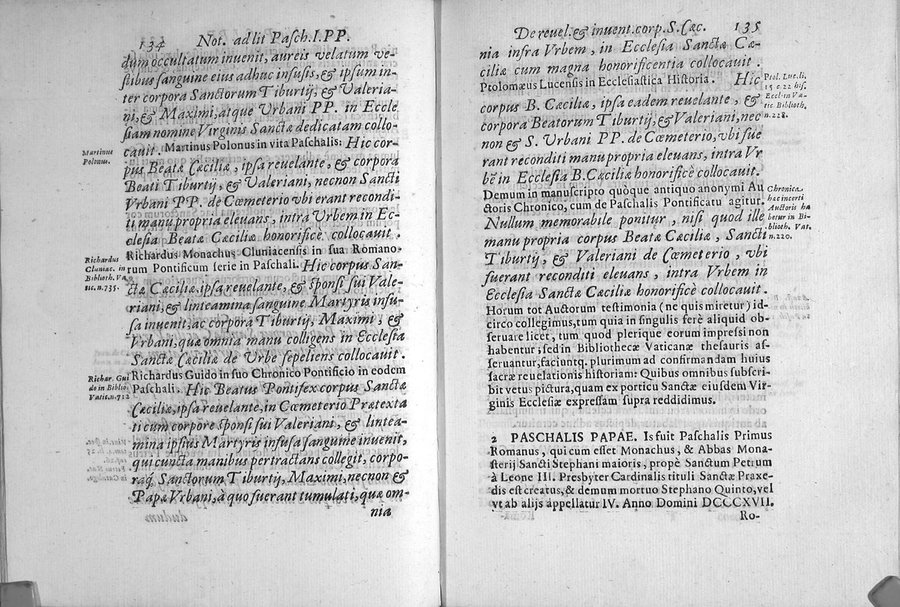 134 Not. ad lit Pasch. I. PP.
dum occultatum inuenit, aureis velatum ve-
stibus sanguine eius adhuc infusis, & ipsum in-
ter corpora Sanctorum Tiburtij, & Valeria-
ni, & Maximi, atque Vrbani PP. in Eccle
siam nomine Virginis Sanctæ dedicatam collo-
cauit. Martinus Polonus in vita Paschalis: Hic cor-
Martinus
Polonus.
pus Beatæ Cæciliæ, ipsa reuelante, & corpora
Beati Tiburtij, & Valeriani, necnon Sancti
Vrbani PP. de Cœmeterio vbi erant recondi-
ti manu propria eleuans, intra Vrbem in Ec-
clesia Beatæ Cæciliæ honorificè collocauit.
Richardus Monachus Cluniacensis in sua Romano-
Richardus
Cluniac. in
Biblioth. Va
tic. n. 735.
rum Pontificum serie in Paschali. Hic corpus San-
ctæ Cæciliæ, ipsa reuelante, & sponsi sui Vale-
riani, & linteamina sanguine Martyris infu-
sa inuenit, ac corpora Tiburtij, Maximi, &
Vrbani, quæ omnia manu colligens in Ecclesia
Sanctæ Cæciliæ de Vrbe sepeliens collocauit.
Richardus Guido in suo Chronico Pontificio in eodem
Richar. Gui
do in Biblio.
Vatit. n. 712
Paschali. Hic Beatus Pontifex corpus Sanctæ
Cæciliæ, ipsa reuelante, in Cœmeterio Prætexta
ti cum corpore sponsi sui Valeriani, & lintea-
mina ipsius Martyris infusa sanguine inuenit,
qui cuncta manibus pertractans collegit, corpo-
raq́. Sanctorum Tiburtij, Maximi, necnon &
Papæ Vrbani, à quo fuerant tumulati, quæ om-
nia
De reuel. & inuent. corp. S. Cæc. 135
nia infra Vrbem, in Ecclesia Sanctæ Cæ-
ciliæ cum magna honorificentia collocauit.
Ptolomæus Lucensis in Ecclesiastica Historia. Hic
Ptol. Luc. li.
15 c. 22 his.
Eccl. in Va-
tic Biblioth.
n. 228.
corpus B. Cæciliæ, ipsa eadem reuelante, &
corpora Beatorum Tiburtij, & Valeriani, nec
non & S. Vrbani PP. de Cœmeterio, vbi fue
rant reconditi manu propria eleuans, intra Vr
bē in Ecclesia B. Cæciliæ honorificè collocauit.
Demum in manuscripto quòque antiquo anonymi Au
Chronica.
hac incerti
Auctoris ha
betur in Bi-
blioth. Vat.
n. 220.
ctoris Chronico, cum de Paschalis Pontificatu agitur.
Nullum memorabile ponitur, nisi quod ille
manu propria corpus Beatæ Cæciliæ, Sancti
Tiburtij, & Valeriani de Cœmeterio, vbi
fuerant reconditi eleuans, intra Vrbem in
Ecclesia Sanctæ Cæciliæ honorificè collocauit.
Horum tot Auctorum testimonia (ne quis miretur) id-
circo collegimus, tum quia in singulis ferè aliquid ob-
seruare licet, tum quod plerique eorum impressi non
habentur, sed in Bibliothecæ Vaticanæ thesauris as-
seruantur, faciuntq́. plurimum ad confirmandam huius
sacræ reuelationis historiam: Quibus omnibus subscri-
bit vetus pictura, quam ex porticu Sanctæ eiusdem Vir-
ginis Ecclesiæ expressam supra reddidimus.
2 PASCHALIS PAPAE. Is fuit Paschalis Primus
Romanus, qui cum esset Monachus, & Abbas Mona-
sterij Sancti Stephani maioris, propè Sanctum Petrum
à Leone III. Presbyter Cardinalis tituli Sanctæ Praxe-
dis est creatus, & demum mortuo Stephano Quinto, vel
vt ab alijs appellatur IV. Anno Domini DCCCXVII.
Ro-